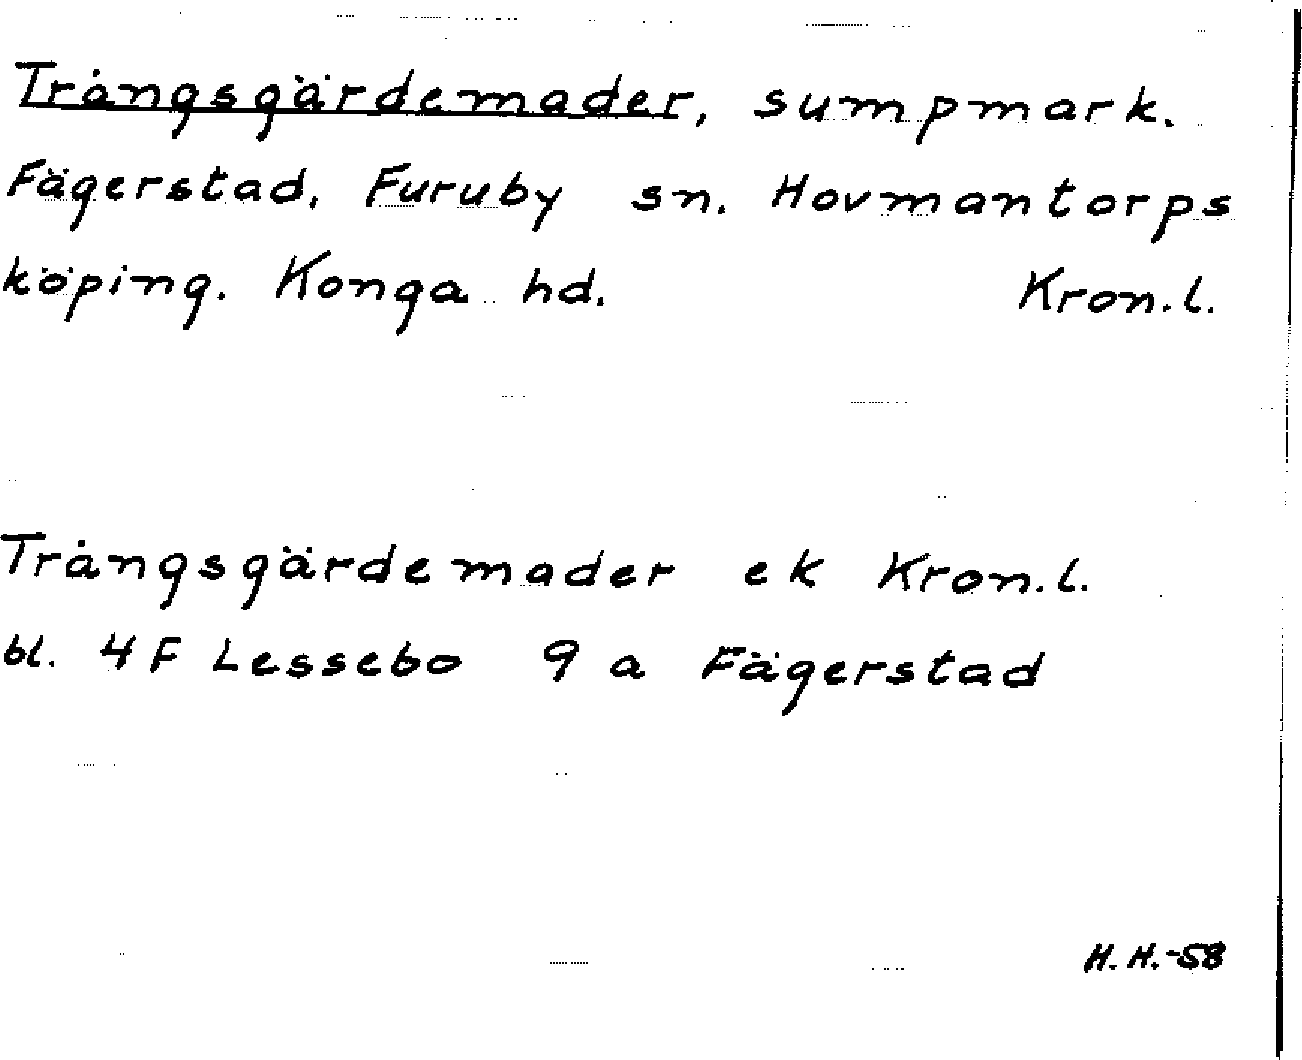 Trångsgärdemader, sumpmark.
Fägerstad, Furuby sn. Hovmantorps
köping. Konga hd. Kron.l.
Trångsgärdemader ek Kron.l.
bl. 4F Lessebo 9 a Fägerstad
H.H.-58